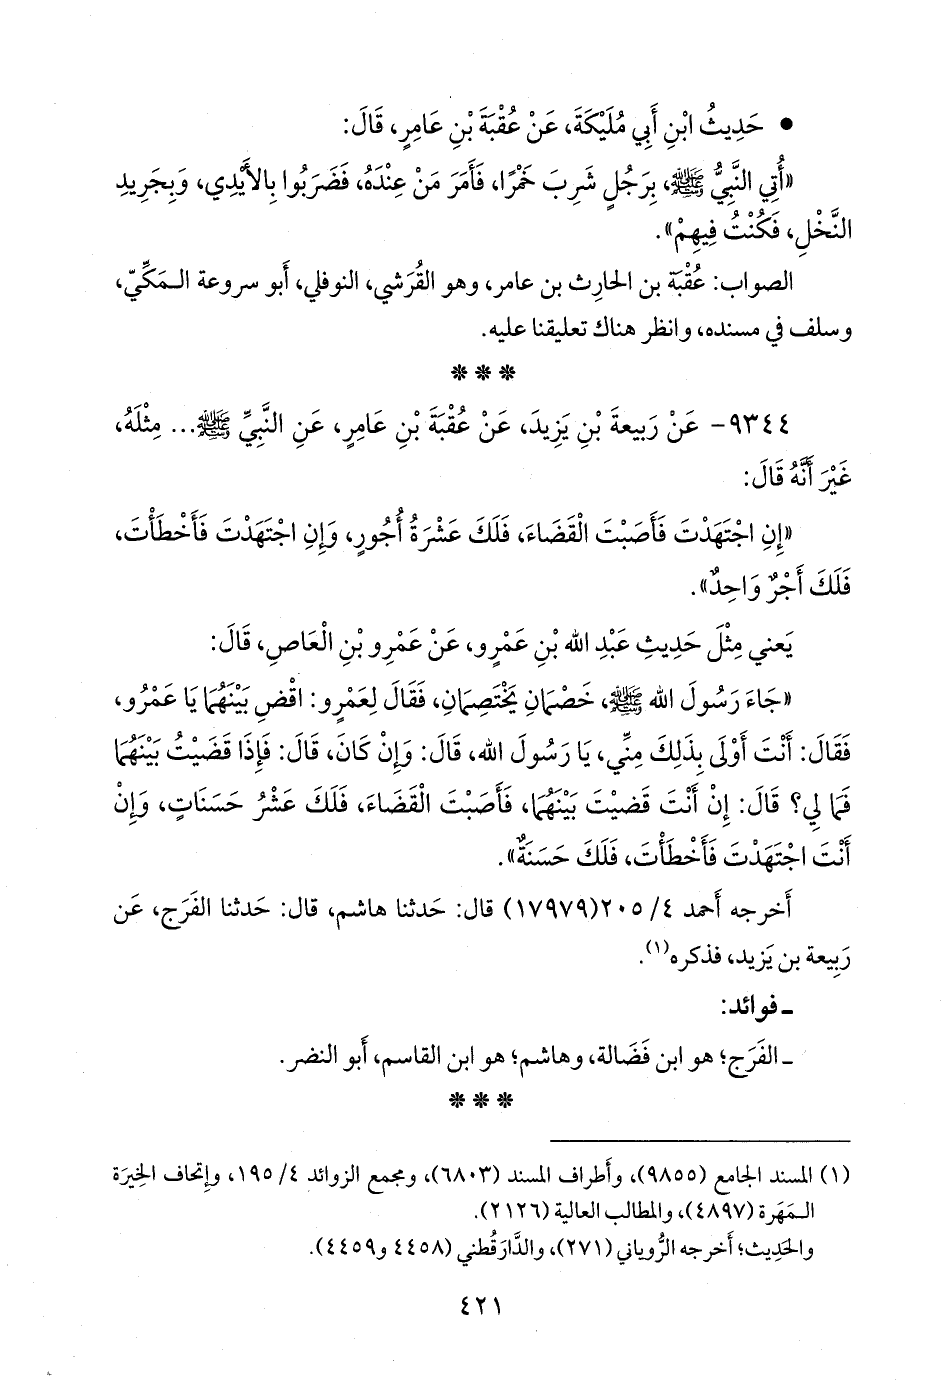 • حَدِيثُ ابْنِ أَبِي مُلَيْكَةَ، عَنْ عُقْبَةَ بْنِ عَامِرٍ، قَالَ:
«أُتِي النَّبِيُّ ﷺ، بِرَجُلٍ شَرِبَ خَمْرًا، فَأَمَرَ مَنْ عِنْدَهُ، فَضَرَبُوا بِالأَيْدِي، وَبِجَرِيدِ
النَّخْلِ، فَكُنْتُ فِيهِمْ».
الصواب: عُقْبَة بن الحارِث بن عامر، وهو القُرَشي، النوفلي، أَبو سروعة الـمَكِّيّ،
وسلف في مسنده، وانظر هناك تعليقنا عليه.
* * *
٩٣٤٤- عَنْ رَبِيعةَ بْنِ يَزِيدَ، عَنْ عُقْبَةَ بْنِ عَامِرٍ، عَنِ النَّبِيِّ ﷺ... مِثْلَهُ،
غَيْرَ أَنَّهُ قَالَ:
«إِنِ اجْتَهَدْتَ فَأَصَبْتَ الْقَضَاءَ، فَلَكَ عَشْرَةُ أُجُورٍ، وَإِنِ اجْتَهَدْتَ فَأَخْطَأْتَ،
فَلَكَ أَجْرٌ وَاحِدٌ».
يَعني مِثْلَ حَدِيثِ عَبْدِ الله بْنِ عَمْرٍو، عَنْ عَمْرِو بْنِ الْعَاصِ، قَالَ:
«جَاءَ رَسُولَ الله ﷺ، خَصْمَانِ يَخْتَصِمَانِ، فَقَالَ لِعَمْرٍو: اقْضِ بَيْنَهُمَا يَا عَمْرُو،
فَقَالَ: أَنْتَ أَوْلَى بِذَلِكَ مِنِّي، يَا رَسُولَ الله، قَالَ: وَإِنْ كَانَ، قَالَ: فَإِذَا قَضَيْتُ بَيْنَهُمَا
فَمَا لِي؟ قَالَ: إِنْ أَنْتَ قَضَيْتَ بَيْنَهُمَا، فَأَصَبْتَ الْقَضَاءَ، فَلَكَ عَشْرُ حَسَنَاتٍ، وَإِنْ
أَنْتَ اجْتَهَدْتَ فَأَخْطَأْتَ، فَلَكَ حَسَنَةٌ».
أَخرجه أَحمد ٤/ ٢٠٥(١٧٩٧٩) قال: حَدثنا هاشم، قال: حَدثنا الفَرَج، عَن
رَبِيعة بن يَزيد، فذكره(١).
ـ فوائد:
ـ الفَرَج؛ هو ابن فَضَالة، وهاشم؛ هو ابن القاسم، أَبو النضر.
* * *
(١) المسند الجامع (٩٨٥٥)، وأَطراف المسند (٦٨٠٣)، ومجمع الزوائد ٤/ ١٩٥، وإِتحاف الخِيرَة
الـمَهَرة (٤٨٩٧)، والمطالب العالية (٢١٢٦).
والحَدِيث؛ أَخرجه الرُّوياني (٢٧١)، والدَّارَقُطني (٤٤٥٨ و٤٤٥٩).
٤٢١